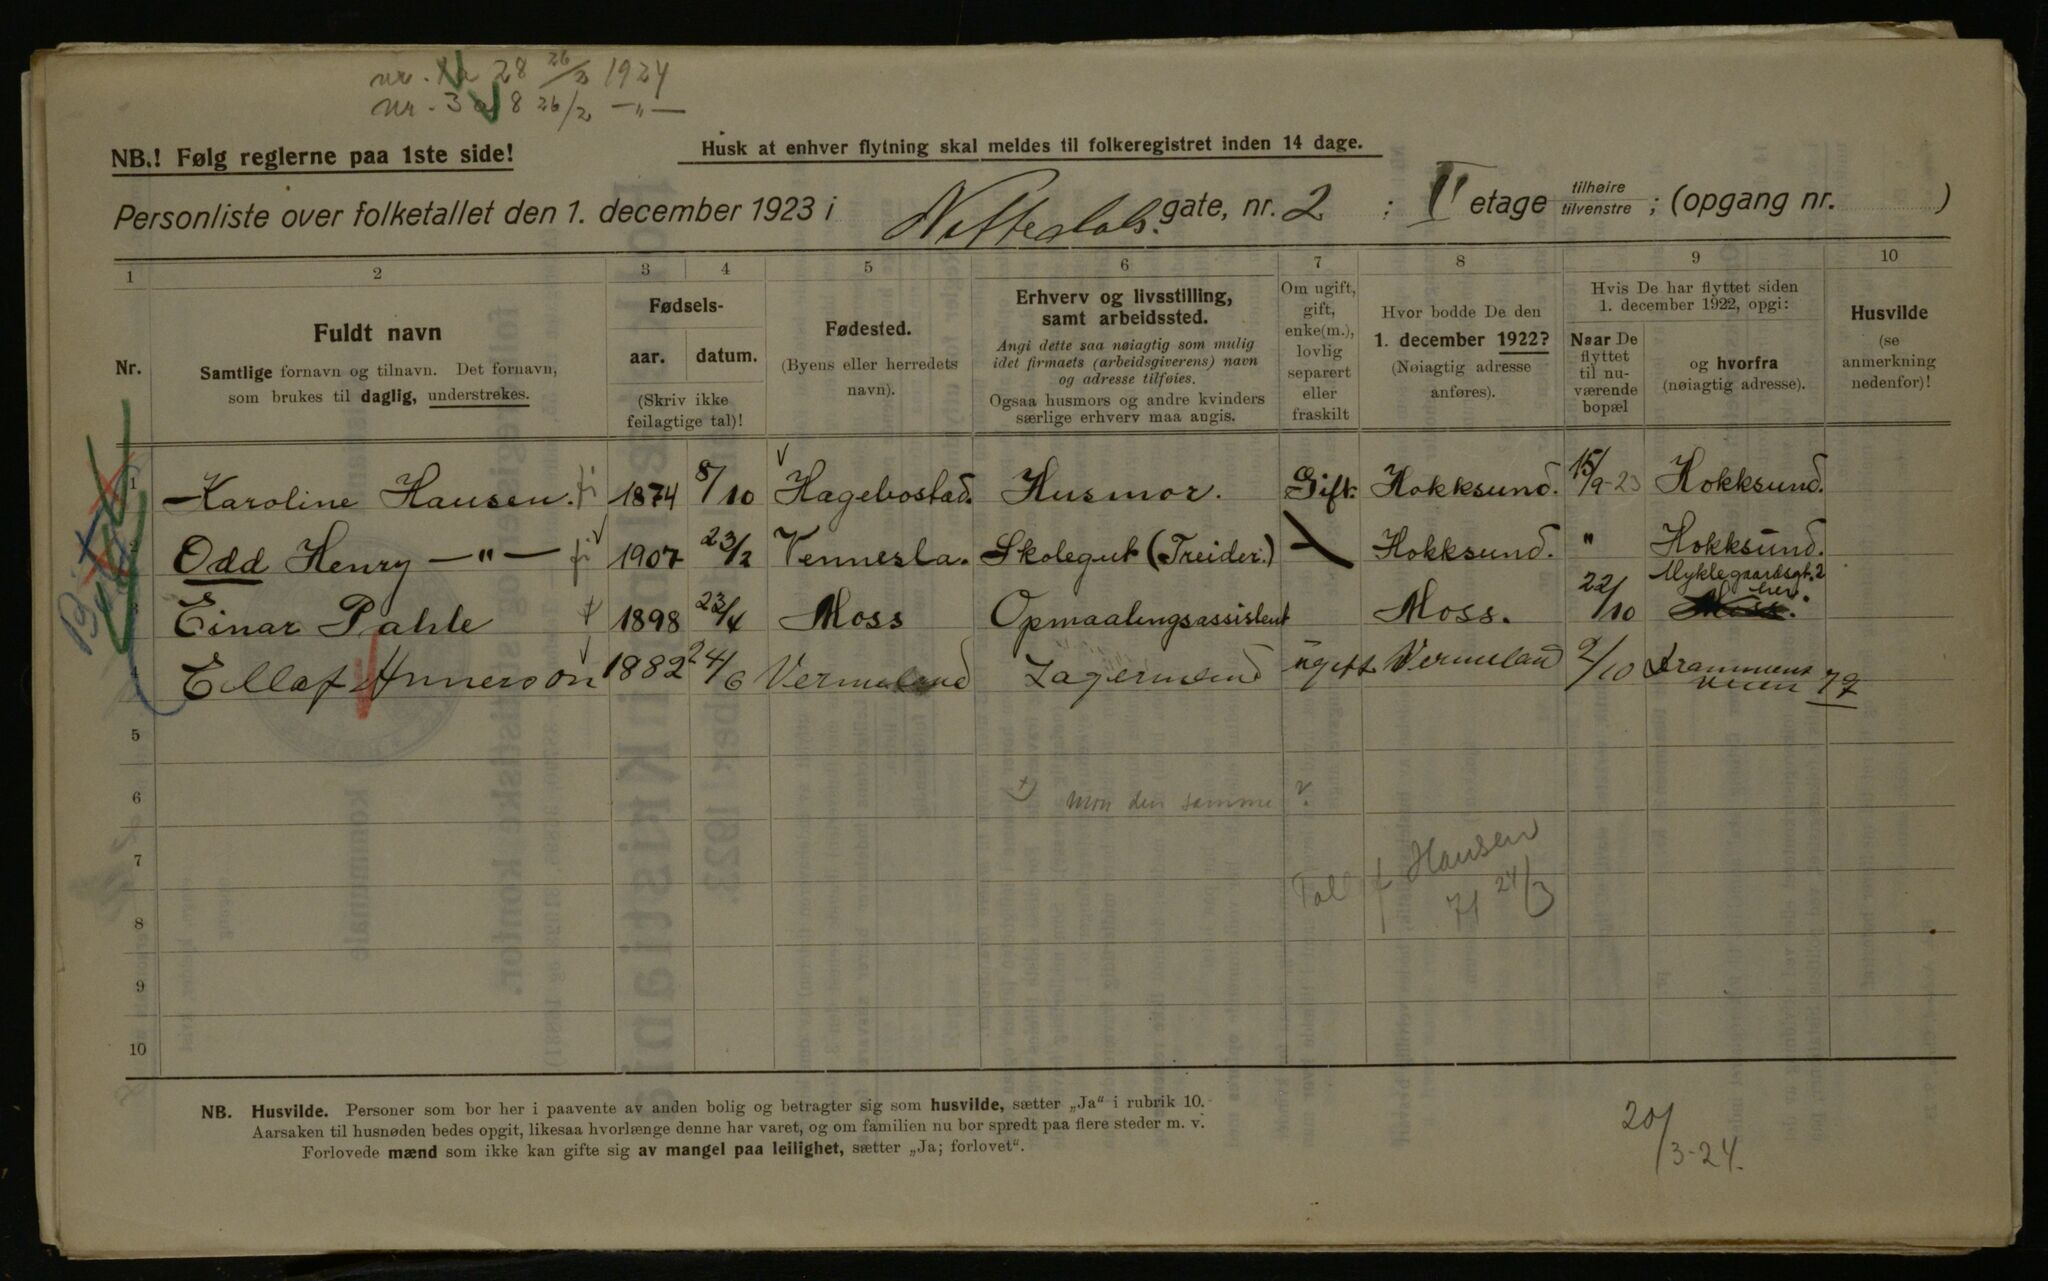 nr. 28 26/2 1924
nr. 3 8 26/2 —"—
NB.! Følg reglerne paa 1ste side!
Husk at enhver flytning skal meldes til folkeregistret inden 14 dage.
Personliste over folketallet den 1. december 1923 i Nittedals. gate, nr. 2 ; II etage tilhøire tilvenstre ; (opgang nr. )
1 2 3 4 5 6 7 8 9 10
Nr.
Fuldt navn
Samtlige fornavn og tilnavn. Det fornavn,
som brukes til daglig, understrekes.
Fødsels-
aar. datum.
(Skriv ikke
feilagtige tal)!
Fødested.
(Byens eller herredets
navn).
Erhverv og livsstilling,
samt arbeidssted.
Angi dette saa nøiagtig som mulig
idet firmaets (arbeidsgiverens) navn
og adresse tilføies.
Ogsaa husmors og andre kvinders
særlige erhverv maa angis.
Om ugift,
gift,
enke(m.),
lovlig
separert
eller
fraskilt
Hvor bodde De den
1. december 1922?
(Nøiagtig adresse
anføres).
Hvis De har flyttet siden
1. december 1922, opgi:
Naar De
flyttet
til nu-
værende
bopæl
og hvorfra
(nøiagtig adresse).
Husvilde
(se
anmerkning
nedenfor)!
1 Karoline Hansen. fi 1874 8/10 Hagebostad. Husmor. Gift. Hokksund. 15/9-23 Hokksund.
Odd Henry —"— fi 1907 23/2 Vennesla. Skolegut (Treider.) Hokksund. " Hokksund.
Einar Pahle 1898 23/4 Moss Opmaalingsassistent Moss. 22/10 Myklegaardsgt. 2 her. Moss.
Ellaf Annerson 1882 24/6 Vermeland ugift Vermeland 2/10 Drammens veien 72
5
6
+) Mon den samme ?
7
Tal f Hansen
71 24/3
8
9
10
NB. Husvilde. Personer som bor her i paavente av anden bolig og betragter sig som husvilde, sætter „Ja" i rubrik 10.
Aarsaken til husnøden bedes opgit, likesaa hvorlænge denne har varet, og om familien nu bor spredt paa flere steder m. v.
Forlovede mænd som ikke kan gifte sig av mangel paa leilighet, sætter „Ja; forlovet".
20/3-24.